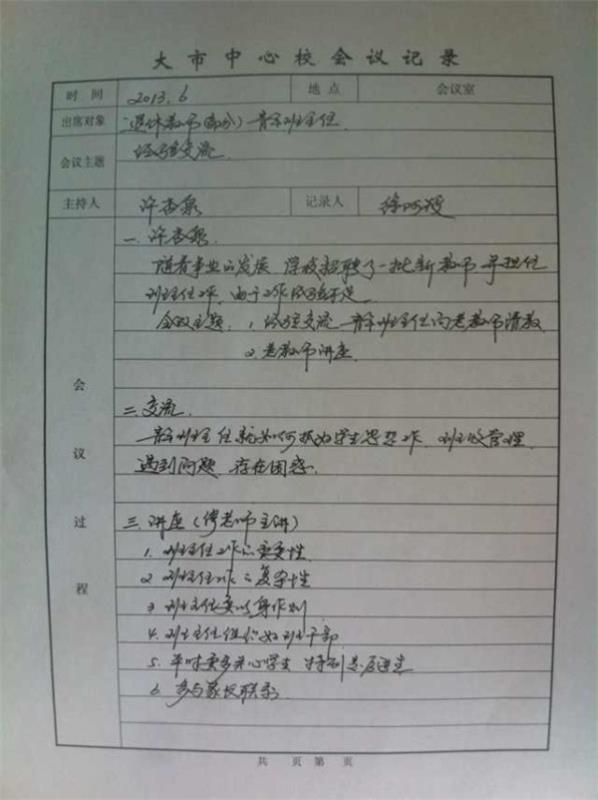 大市中心校会议记录
时间 2013.6 地点 会议室
出席对象 退休教师(部分) 青年班主任
会议主题 经验交流
主持人 许杏泉 记录人 徐
一. 许杏泉:
随着事业的发展, 学校招聘了一批新教师 并担任
班主任工作, 由于工作经验不足
会议主题: 1. 经验交流 青年班主任向老教师请教
2. 老教师讲座
会议过程
二. 交流.
青年班主任就如何抓好学生思想工作, 班级管理
遇到问题, 存在困惑.
三. 讲座(傅老师主讲)
1. 班主任工作的重要性
2. 班主任工作的复杂性
3 班主任要以身作则
4. 班主任组织好班干部
5. 平时要多关心学生 特别是后进生
6. 多与家长联系
共 页 第 页